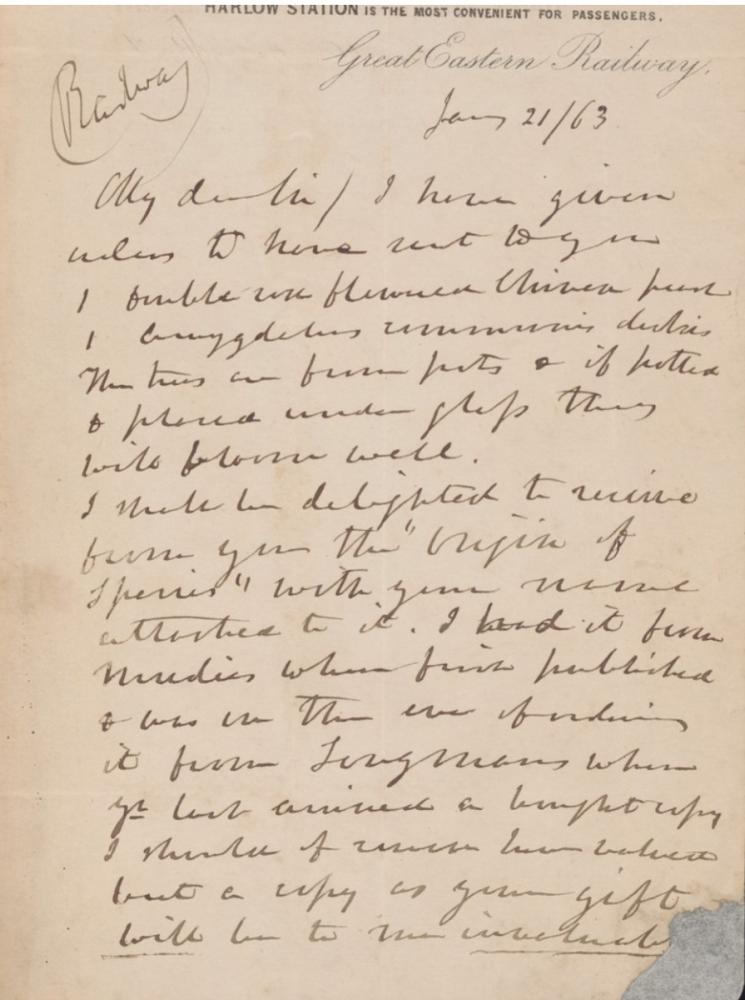 HARLOW STATION IS THE MOST CONVENIENT FOR PASSENGERS.
Great Eastern Railway.
Railway
Jany 21/63
My dear Sir/ I have given
orders to have sent to you
1 double rose flowered Chinese peach
1 Amygdalus communis dulcis
The trees are from pots & if potted
& placed under glass they
will bloom well.
I shall be delighted to receive
from you the "Origin of
Species" with your name
attached to it. I had it from
Mudies when first published
& was on the eve of ordering
it from Longmans when
yr last arrived a bought copy
I should of course have valued
but a copy as your gift
will be to me invaluable